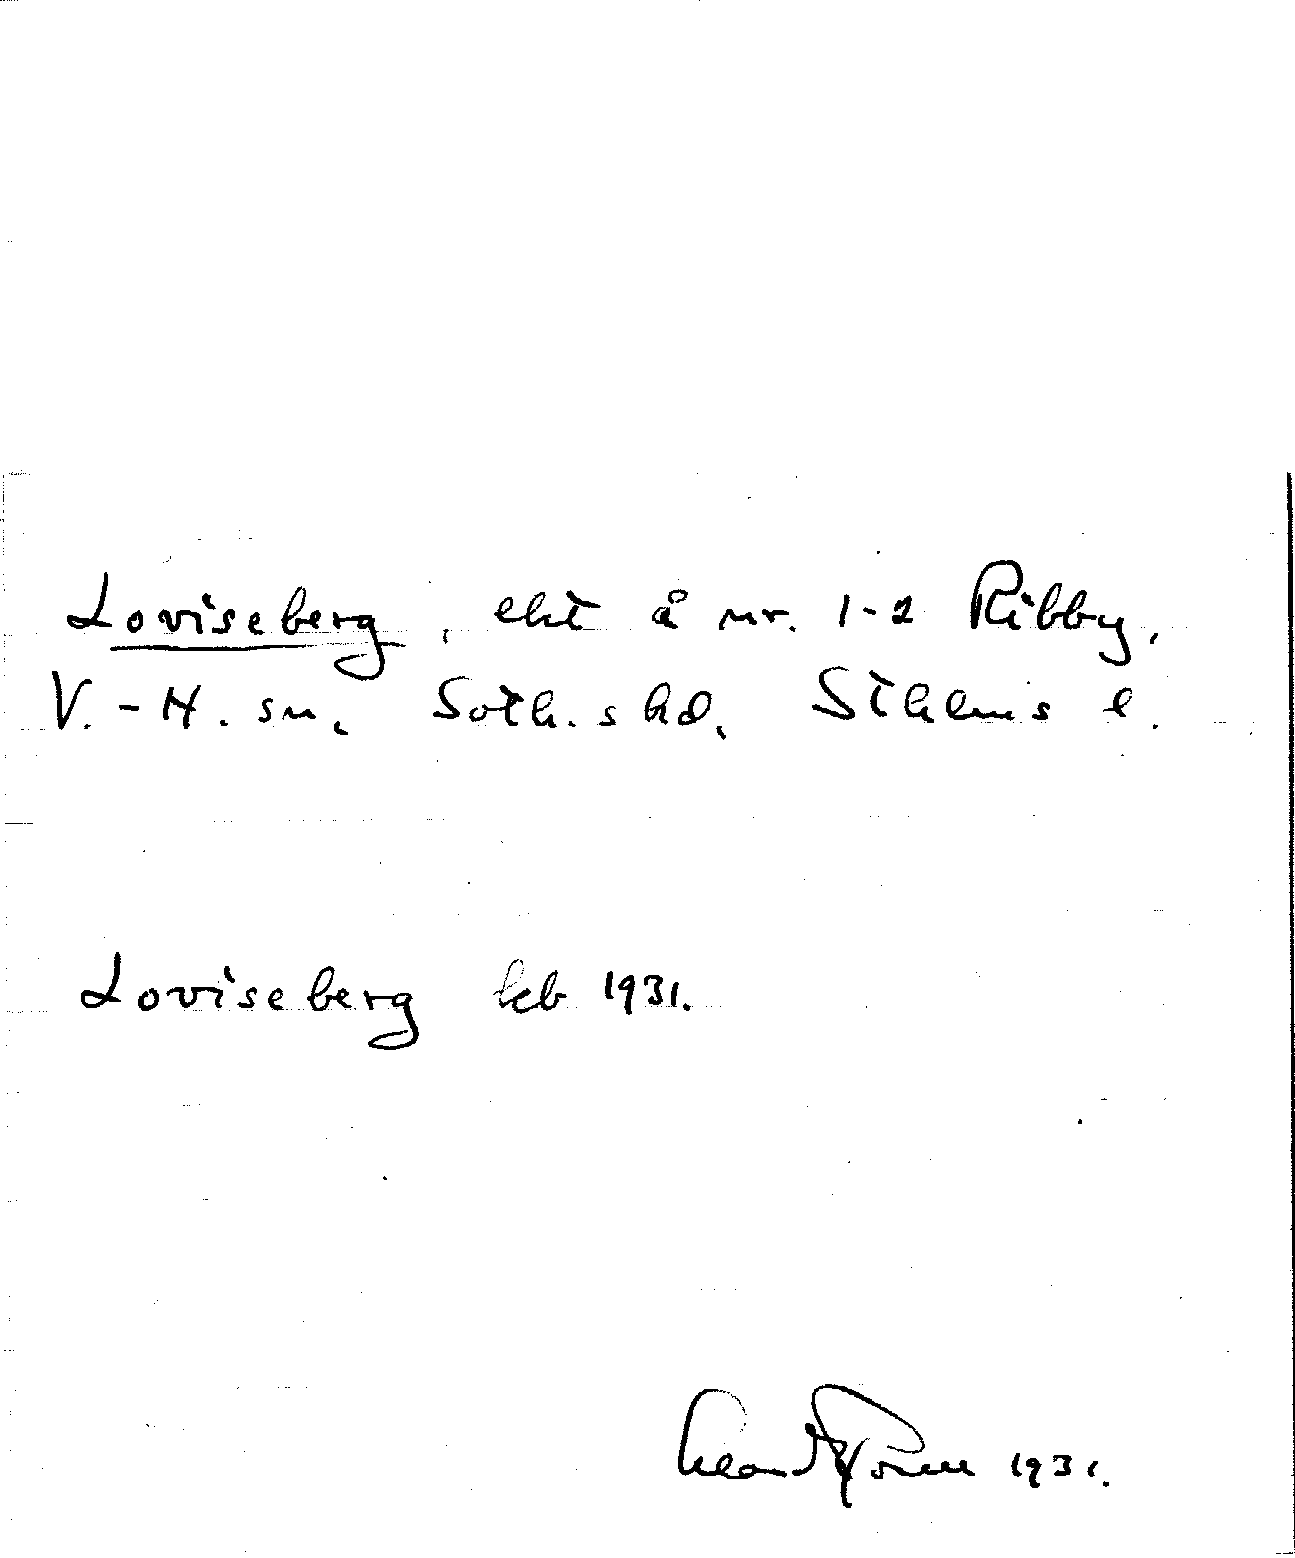 Loviseberg, ekt å nr. 1-2 Ribby,
V.-H. sn, Soth. s hd, Sthlms l.
Loviseberg kb 1931.
1931.